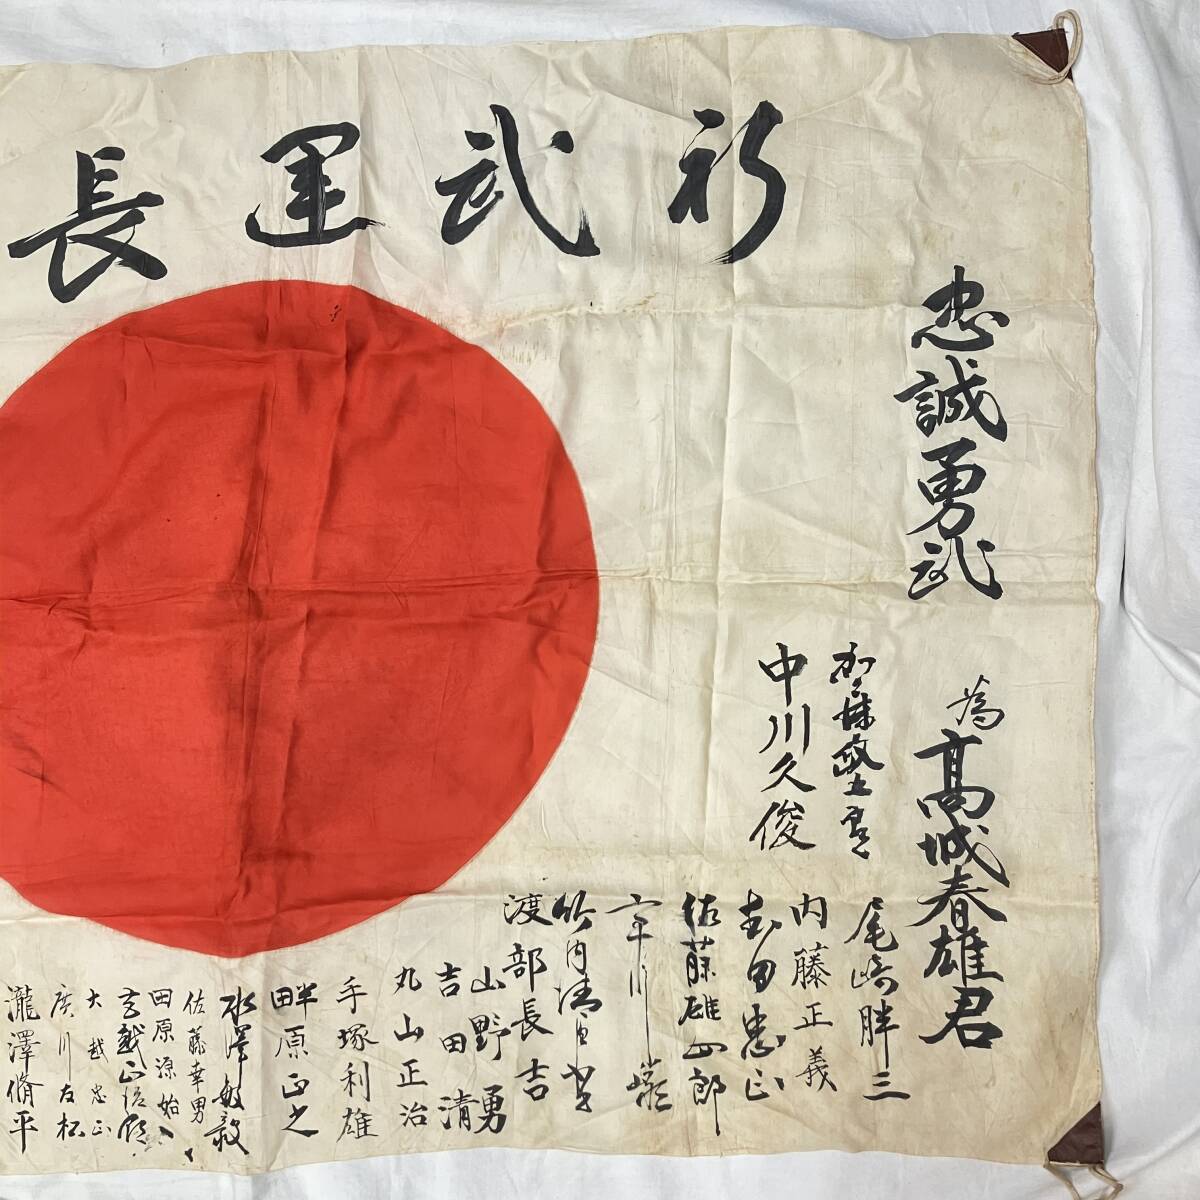 祈武運長
忠誠勇武
為髙城春雄君
中川久俊
尾崎胖三
内藤正義
吉田忠正
佐藤雄四郎
竹内清
渡部長吉
山野勇
吉田清
丸山正治
手塚利雄
畔原正之
水澤敏
佐藤幸男
田原源始
大越忠正
廣川友
瀧澤脩平